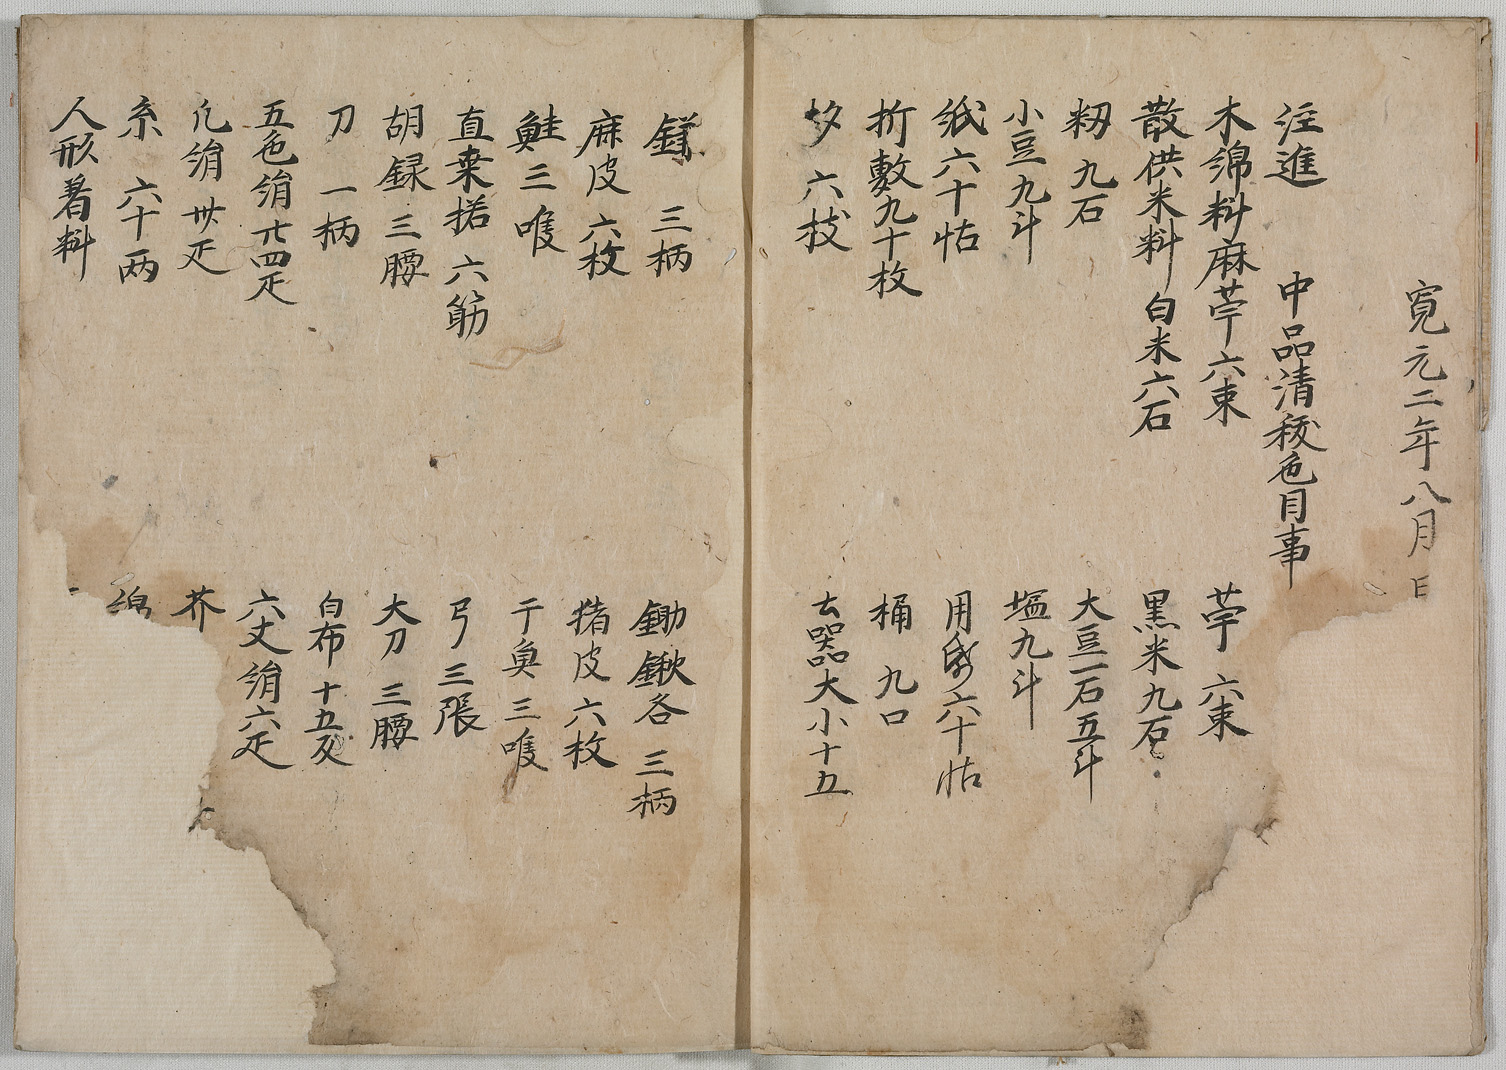 寛元二年八月日
注進　中品清祓色目事
木綿料麻苧六束　苧六束
散供米料白米六石　黒米九石
籾九石　大豆一石五斗
小豆九斗　塩九斗
紙六十帖　用紙六十帖
折敷九十枚　桶九口
杓六枝　土器大小十五
鎌三柄　鋤鍬各三柄
麻皮六枚　猪皮六枚
鮭三隻　干魚三隻
直垂　六筋　弓三張
胡録三腰　大刀三腰
刀一柄　白布十五段
五色絹廿四疋　六丈絹六疋
凡絹卅疋　芥
糸六十両　綿
人形着料